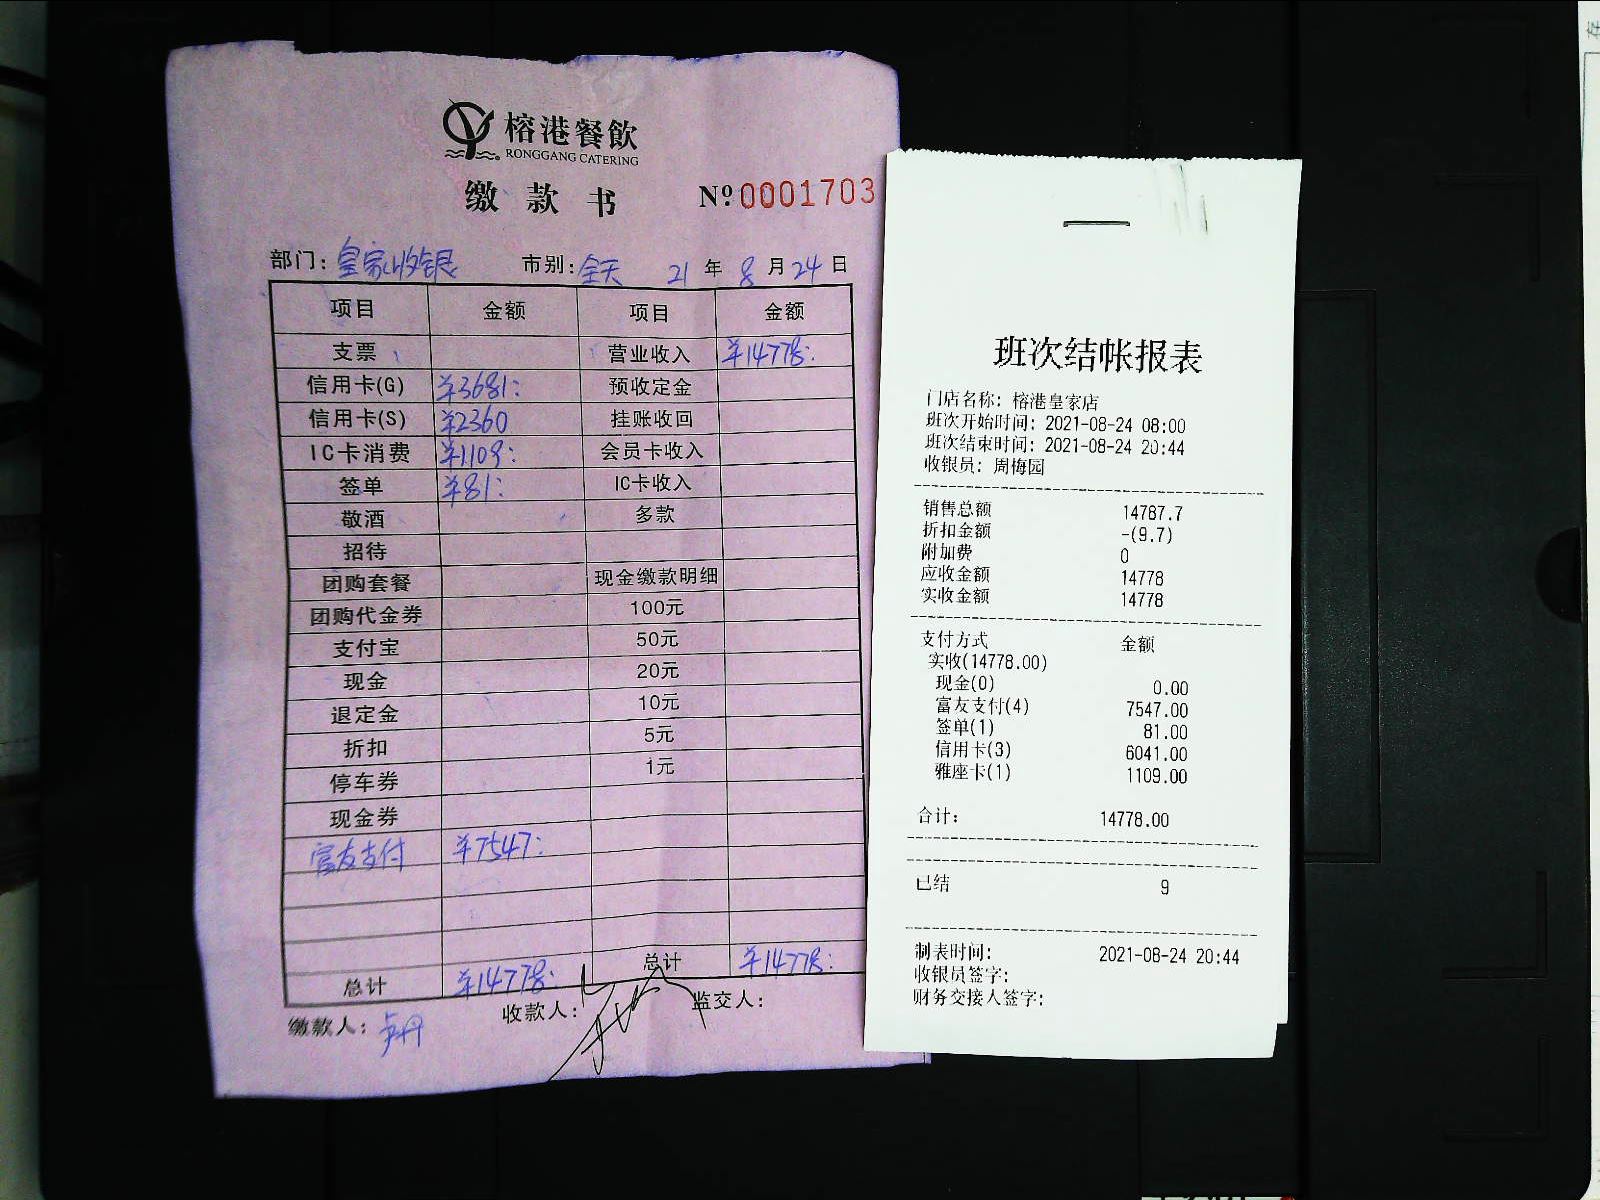 榕港餐飲
RONGGANG CATERING
缴款书 Nº 0001703
部门: 皇家收银 市别: 全天 21 年 8 月 24 日
项目 金额 项目 金额
支票 营业收入 ¥14778:
信用卡(G) ¥3681: 预收定金
信用卡(S) ¥2360 挂账收回
IC卡消费 ¥1109: 会员卡收入
签单 ¥81: IC卡收入
敬酒 多款
招待
团购套餐 现金缴款明细
团购代金券 100元
支付宝 50元
现金 20元
退定金 10元
折扣 5元
停车券 1元
现金券
富友支付 ¥7547:
总计 ¥14778: 总计 ¥14778:
缴款人: 收款人: 监交人:
班次结帐报表
门店名称: 榕港皇家店
班次开始时间: 2021-08-24 08:00
班次结束时间: 2021-08-24 20:44
收银员: 周梅园
销售总额 14787.7
折扣金额 -(9.7)
附加费 0
应收金额 14778
实收金额 14778
支付方式 金额
实收(14778.00)
现金(0) 0.00
富友支付(4) 7547.00
签单(1) 81.00
信用卡(3) 6041.00
雅座卡(1) 1109.00
合计: 14778.00
已结 9
制表时间: 2021-08-24 20:44
收银员签字:
财务交接人签字: